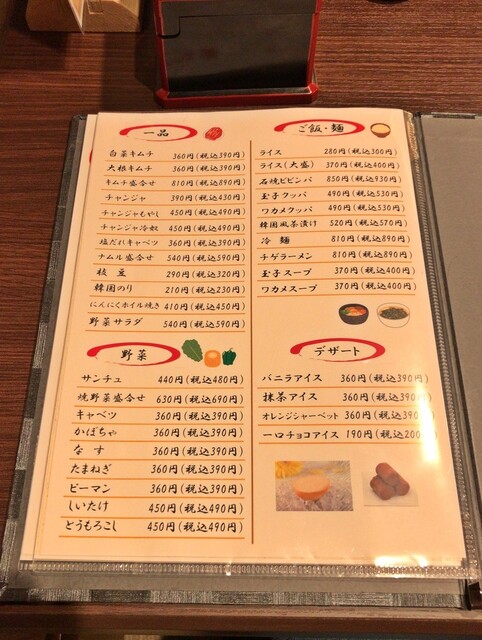 一品
白菜キムチ 360円(税込390円)
大根キムチ 360円(税込390円)
キムチ盛合せ 810円(税込890円)
チャンジャ 390円(税込430円)
チャンジャもやし 450円(税込490円)
チャンジャ冷奴 450円(税込490円)
塩だれキャベツ 360円(税込390円)
ナムル盛合せ 540円(税込590円)
枝豆 290円(税込320円)
韓国のり 210円(税込230円)
にんにくホイル焼き 410円(税込450円)
野菜サラダ 540円(税込590円)
野菜
サンチュ 440円(税込480円)
焼野菜盛合せ 630円(税込690円)
キャベツ 360円(税込390円)
かぼちゃ 360円(税込390円)
なす 360円(税込390円)
たまねぎ 360円(税込390円)
ピーマン 360円(税込390円)
しいたけ 450円(税込490円)
とうもろこし 450円(税込490円)
ご飯・麺
ライス 280円(税込300円)
ライス(大盛) 370円(税込400円)
石焼ビビンバ 850円(税込930円)
玉子クッパ 490円(税込530円)
ワカメクッパ 490円(税込530円)
韓国風茶漬け 520円(税込570円)
冷麺 810円(税込890円)
チゲラーメン 810円(税込890円)
玉子スープ 370円(税込400円)
ワカメスープ 370円(税込400円)
デザート
バニラアイス 360円(税込390円)
抹茶アイス 360円(税込390円)
オレンジシャーベット 360円(税込390円)
一口チョコアイス 190円(税込200円)